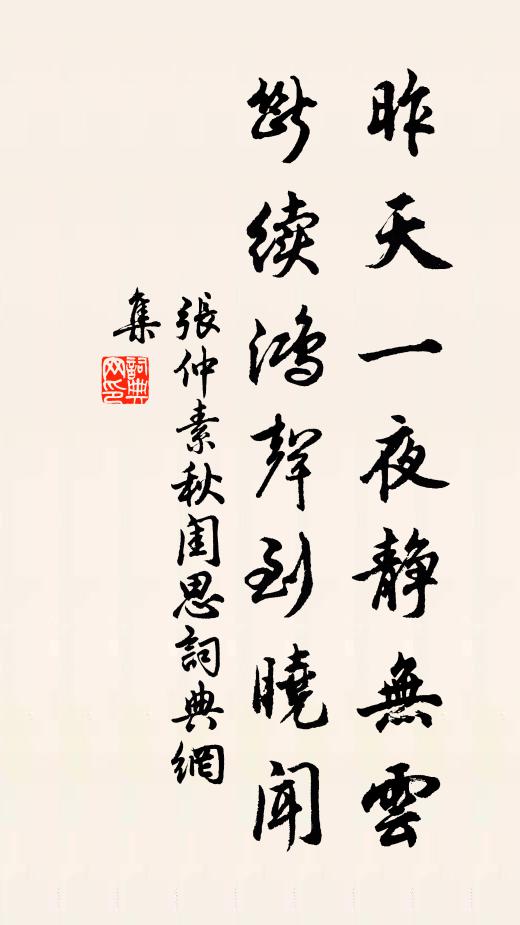 昨天一夜靜無雲
斷續鴻聲到曉聞
張仲素秋閨思詞典網
集
詞典網印